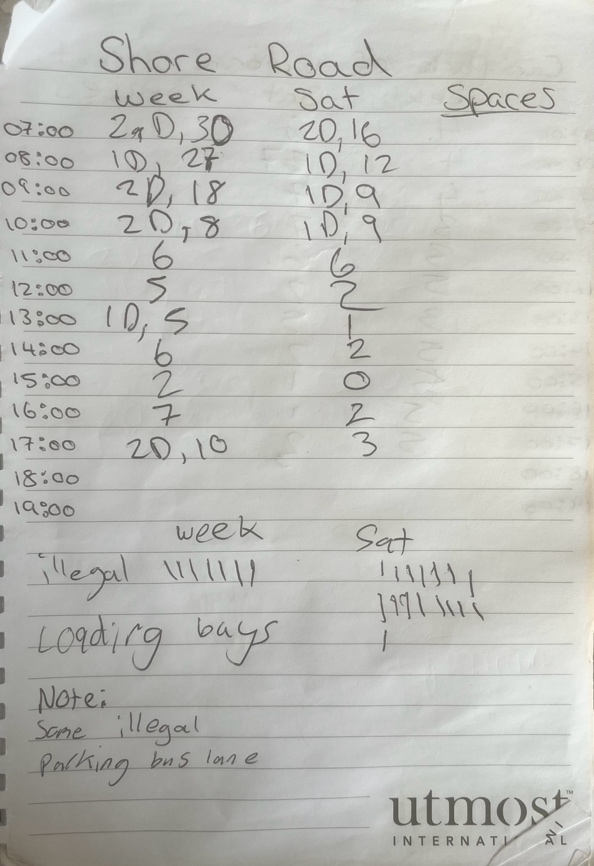 Shore Road
week Sat Spaces
07:00 2D, 30 2D, 16
08:00 1D, 27 1D, 12
09:00 2D, 18 1D, 9
10:00 2D, 8 1D, 9
11:00 6 6
12:00 5 2
13:00 1D, 5 1
14:00 6 2
15:00 2 0
16:00 7 2
17:00 2D, 10 3
18:00
19:00
week Sat
illegal
Loading bays
Note:
Some illegal
parking bus lane
utmost™
INTERNATIONAL